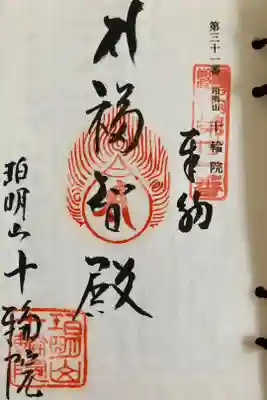 第三十一番 珀明山 十輪院
奉納
福智殿
珀明山十輪院